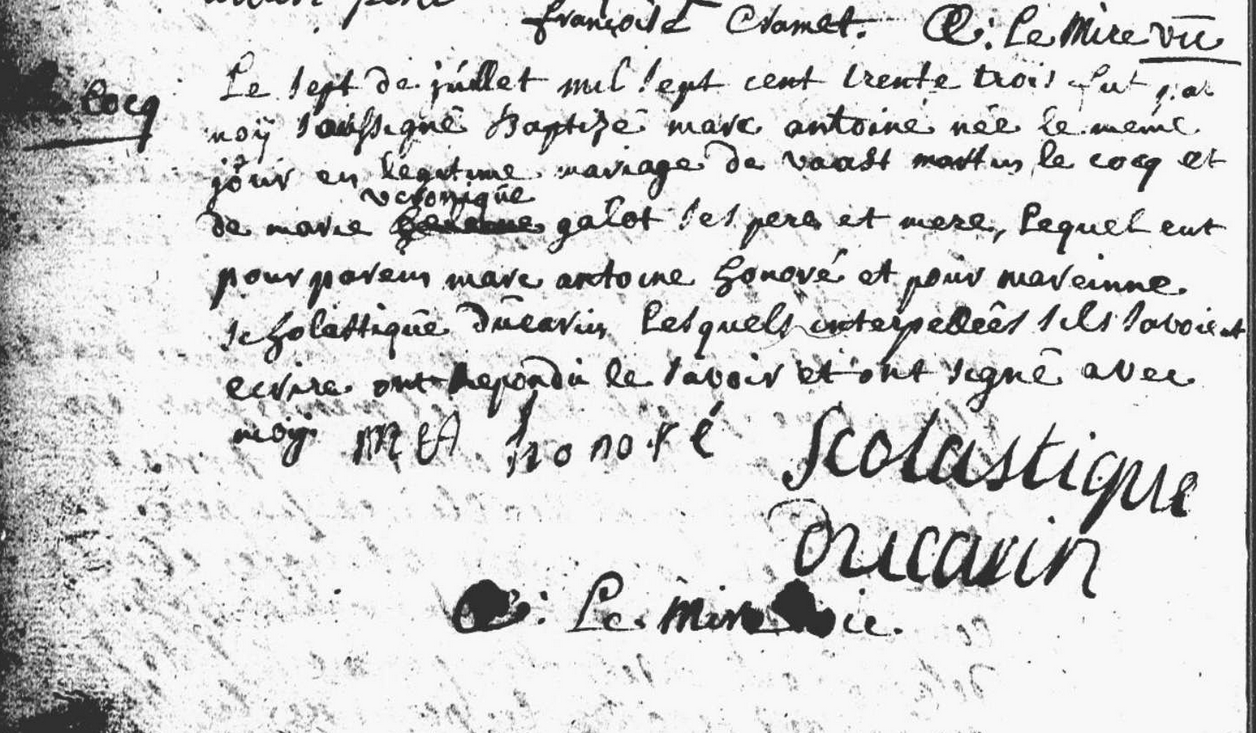 françoise Cramet. Œ: Le Mire vic
le Cocq
Le sept de juillet mil sept cent trente trois fut par
moÿ soussigné Baptizé marc antoine née le meme
jour en legitime mariage de vaast martin le cocq et
veronique
de marie galot ses pere et mere, lequel eut
pour parein marc antoine honoré et pour mareinne
scholastique ducarin lesquels interpellées s'ils savoient
ecrire ont repondu le savoir et ont signé avec
moÿ MA honoré Scolastique
Ducarin
Le Mire vic.